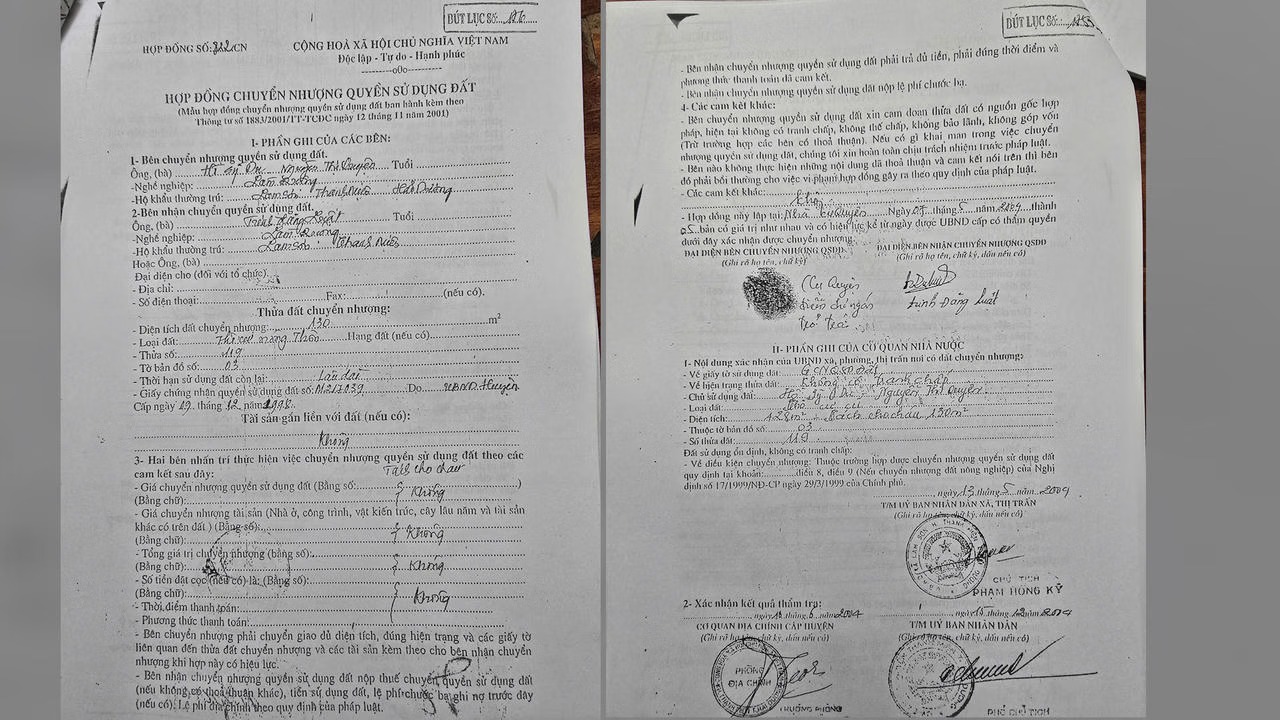 BÚT LỤC SỐ:
HỢP ĐỒNG SỐ: CN
CỘNG HOÀ XÃ HỘI CHỦ NGHĨA VIỆT NAM
Độc lập - Tự do - Hạnh phúc
----------o0o----------
HỢP ĐỒNG CHUYỂN NHƯỢNG QUYỀN SỬ DỤNG ĐẤT
(Mẫu hợp đồng chuyển nhượng quyền sử dụng đất ban hành kèm theo
Thông tư số 1883/2001/TT-TCĐC ngày 12 tháng 11 năm 2001)
I- PHẦN GHI CỦA CÁC BÊN:
1- Bên chuyển nhượng quyền sử dụng đất.
Ông, (bà) Nguyễn Thị Quyên Tuổi
-Nghề nghiệp: Làm ruộng
-Hộ khẩu thường trú: Lam Sơn Thanh Miện Hải Dương
2-Bên nhận chuyển quyền sử dụng đất.
Ông, (bà) Trịnh Đăng Luật Tuổi
-Nghề nghiệp: Làm ruộng
-Hộ khẩu thường trú: Lam Sơn Thanh Miện
Hoặc Ông, (bà)
Đại diện cho (đối với tổ chức)
- Địa chỉ:
- Số điện thoại: Fax: (nếu có).
Thửa đất chuyển nhượng:
- Diện tích đất chuyển nhượng: 130 m²
- Loại đất: Hạng đất (nếu có)
- Thửa số: 119
- Tờ bản đồ số: 03
- Thời hạn sử dụng đất còn lại: Lâu dài
- Giấy chứng nhận quyền sử dụng đất số: Do UBND Huyện
Cấp ngày 29 tháng 12 năm 1998
Tài sản gắn liền với đất (nếu có):
Không
3- Hai bên nhấn trí thực hiện việc chuyển nhượng quyền sử dụng đất theo các
cam kết sau đây: cho cháu
- Giá chuyển nhượng quyền sử dụng đất (Bằng số: )
(Bằng chữ): Không
- Giá chuyển nhượng tài sản (Nhà ở, công trình, vật kiến trúc, cây lâu năm và tài sản
khác có trên đất ) (Bằng số):
(Bằng chữ): Không
- Tổng giá trị chuyển nhượng (bằng số)
(Bằng chữ): Không
- Số tiền đặt cọc (nếu có) là: (Bằng số):
(Bằng chữ): Không
- Thời điểm thanh toán:
- Phương thức thanh toán:
- Bên chuyển nhượng phải chuyển giao đủ diện tích, đúng hiện trạng và các giấy tờ
liên quan đến thửa đất chuyển nhượng và các tài sản kèm theo cho bên nhận chuyển
nhượng khi hợp này có hiệu lực.
- Bên chuyển nhượng quyền sử dụng đất nộp thuế chuyển quyền sử dụng đất
(nếu không có thoả thuận khác), tiền sử dụng đất, lệ phí trước bạ ghi nợ trước đây
(nếu có). Lệ phí địa chính theo quy định của pháp luật.
BÚT LỤC SỐ:
- Bên nhận chuyển nhượng quyền sử dụng đất phải trả đủ tiền, phải đúng thời điểm và
phương thức thanh toán đã cam kết.
- Bên nhận chuyển nhượng quyền sử dụng đất nộp lệ phí chước bạ.
4- Các cam kết khác:
- Bên chuyển nhượng quyền sử dụng đất xin cam đoan thửa đất có nguồn gốc hợp
pháp, hiện tại không có tranh chấp, không thế chấp, không bảo lãnh, không góp vốn
(Trừ trường hợp các bên có thoả thuận). Nếu có gì khai man trong việc chuyển
nhượng quyền sử dụng đất, chúng tôi xin hoàn toàn chịu trách nhiệm trước pháp luật.
- Bên nào không thực hiện những nội dung đã thoả thuận và cam kết nói trên thì bên
đó phải bồi thường cho việc vi phạm hợp đồng gây ra theo quy định của pháp luật.
- Các cam kết khác:
Không
- Hợp đồng này lập tại: Nhà Ngày tháng 5 năm 2004 thành
05 bản có giá trị như nhau và có hiệu lực kể từ ngày được UBND cấp có thẩm quyền
dưới đây xác nhận được chuyển nhượng.
ĐẠI DIỆN BÊN CHUYỂN NHƯỢNG QSDĐ
(Ghi rõ họ tên, chữ ký)
ĐẠI DIỆN BÊN NHẬN CHUYỂN NHƯỢNG QSDĐ
(Ghi rõ họ tên, chữ ký, dấu nếu có)
Cụ Quyên
điểm chỉ ngón
trỏ trái
Trịnh Đăng Luật
II- PHẦN GHI CỦA CƠ QUAN NHÀ NƯỚC
1- Nội dung xác nhận của UBND xã, phường, thị trấn nơi có đất chuyển nhượng:
- Về giấy tờ sử dụng đất:
- Về hiện trạng thửa đất: Không có tranh chấp
- Chủ sử dụng đất: Nguyễn Thị Quyên
- Loại đất: Thổ cư
- Diện tích: tách cho cháu 130m²
- Thuộc tờ bản đồ số: 03
- Số thửa đất: 119
Đất sử dụng ổn định, không có tranh chấp:
- Về điều kiện chuyển nhượng: Thuộc trường hợp được chuyển nhượng quyền sử dụng đất
quy định tại khoản: điều 8, điều 9 (Nếu chuyển nhượng đất nông nghiệp) của Nghị
định số 17/1999/NĐ-CP ngày 29/3/1999 của Chính phủ.
, ngày 13 tháng 5 năm 2004
T/M UỶ BAN NHÂN DÂN XÃ, THỊ TRẤN
(Ghi rõ họ tên, chữ ký, dấu nếu có)
CHỦ TỊCH
PHẠM HỒNG KỲ
2- Xác nhận kết quả thẩm tra:
CƠ QUAN ĐỊA CHÍNH CẤP HUYỆN
(Ghi rõ họ tên, chữ ký, dấu nếu có)
PHÒNG
ĐỊA CHÍNH
TRƯỞNG PHÒNG
T/M UỶ BAN NHÂN DÂN
(Ghi rõ họ tên, chữ ký, dấu nếu có)
PHÓ CHỦ TỊCH